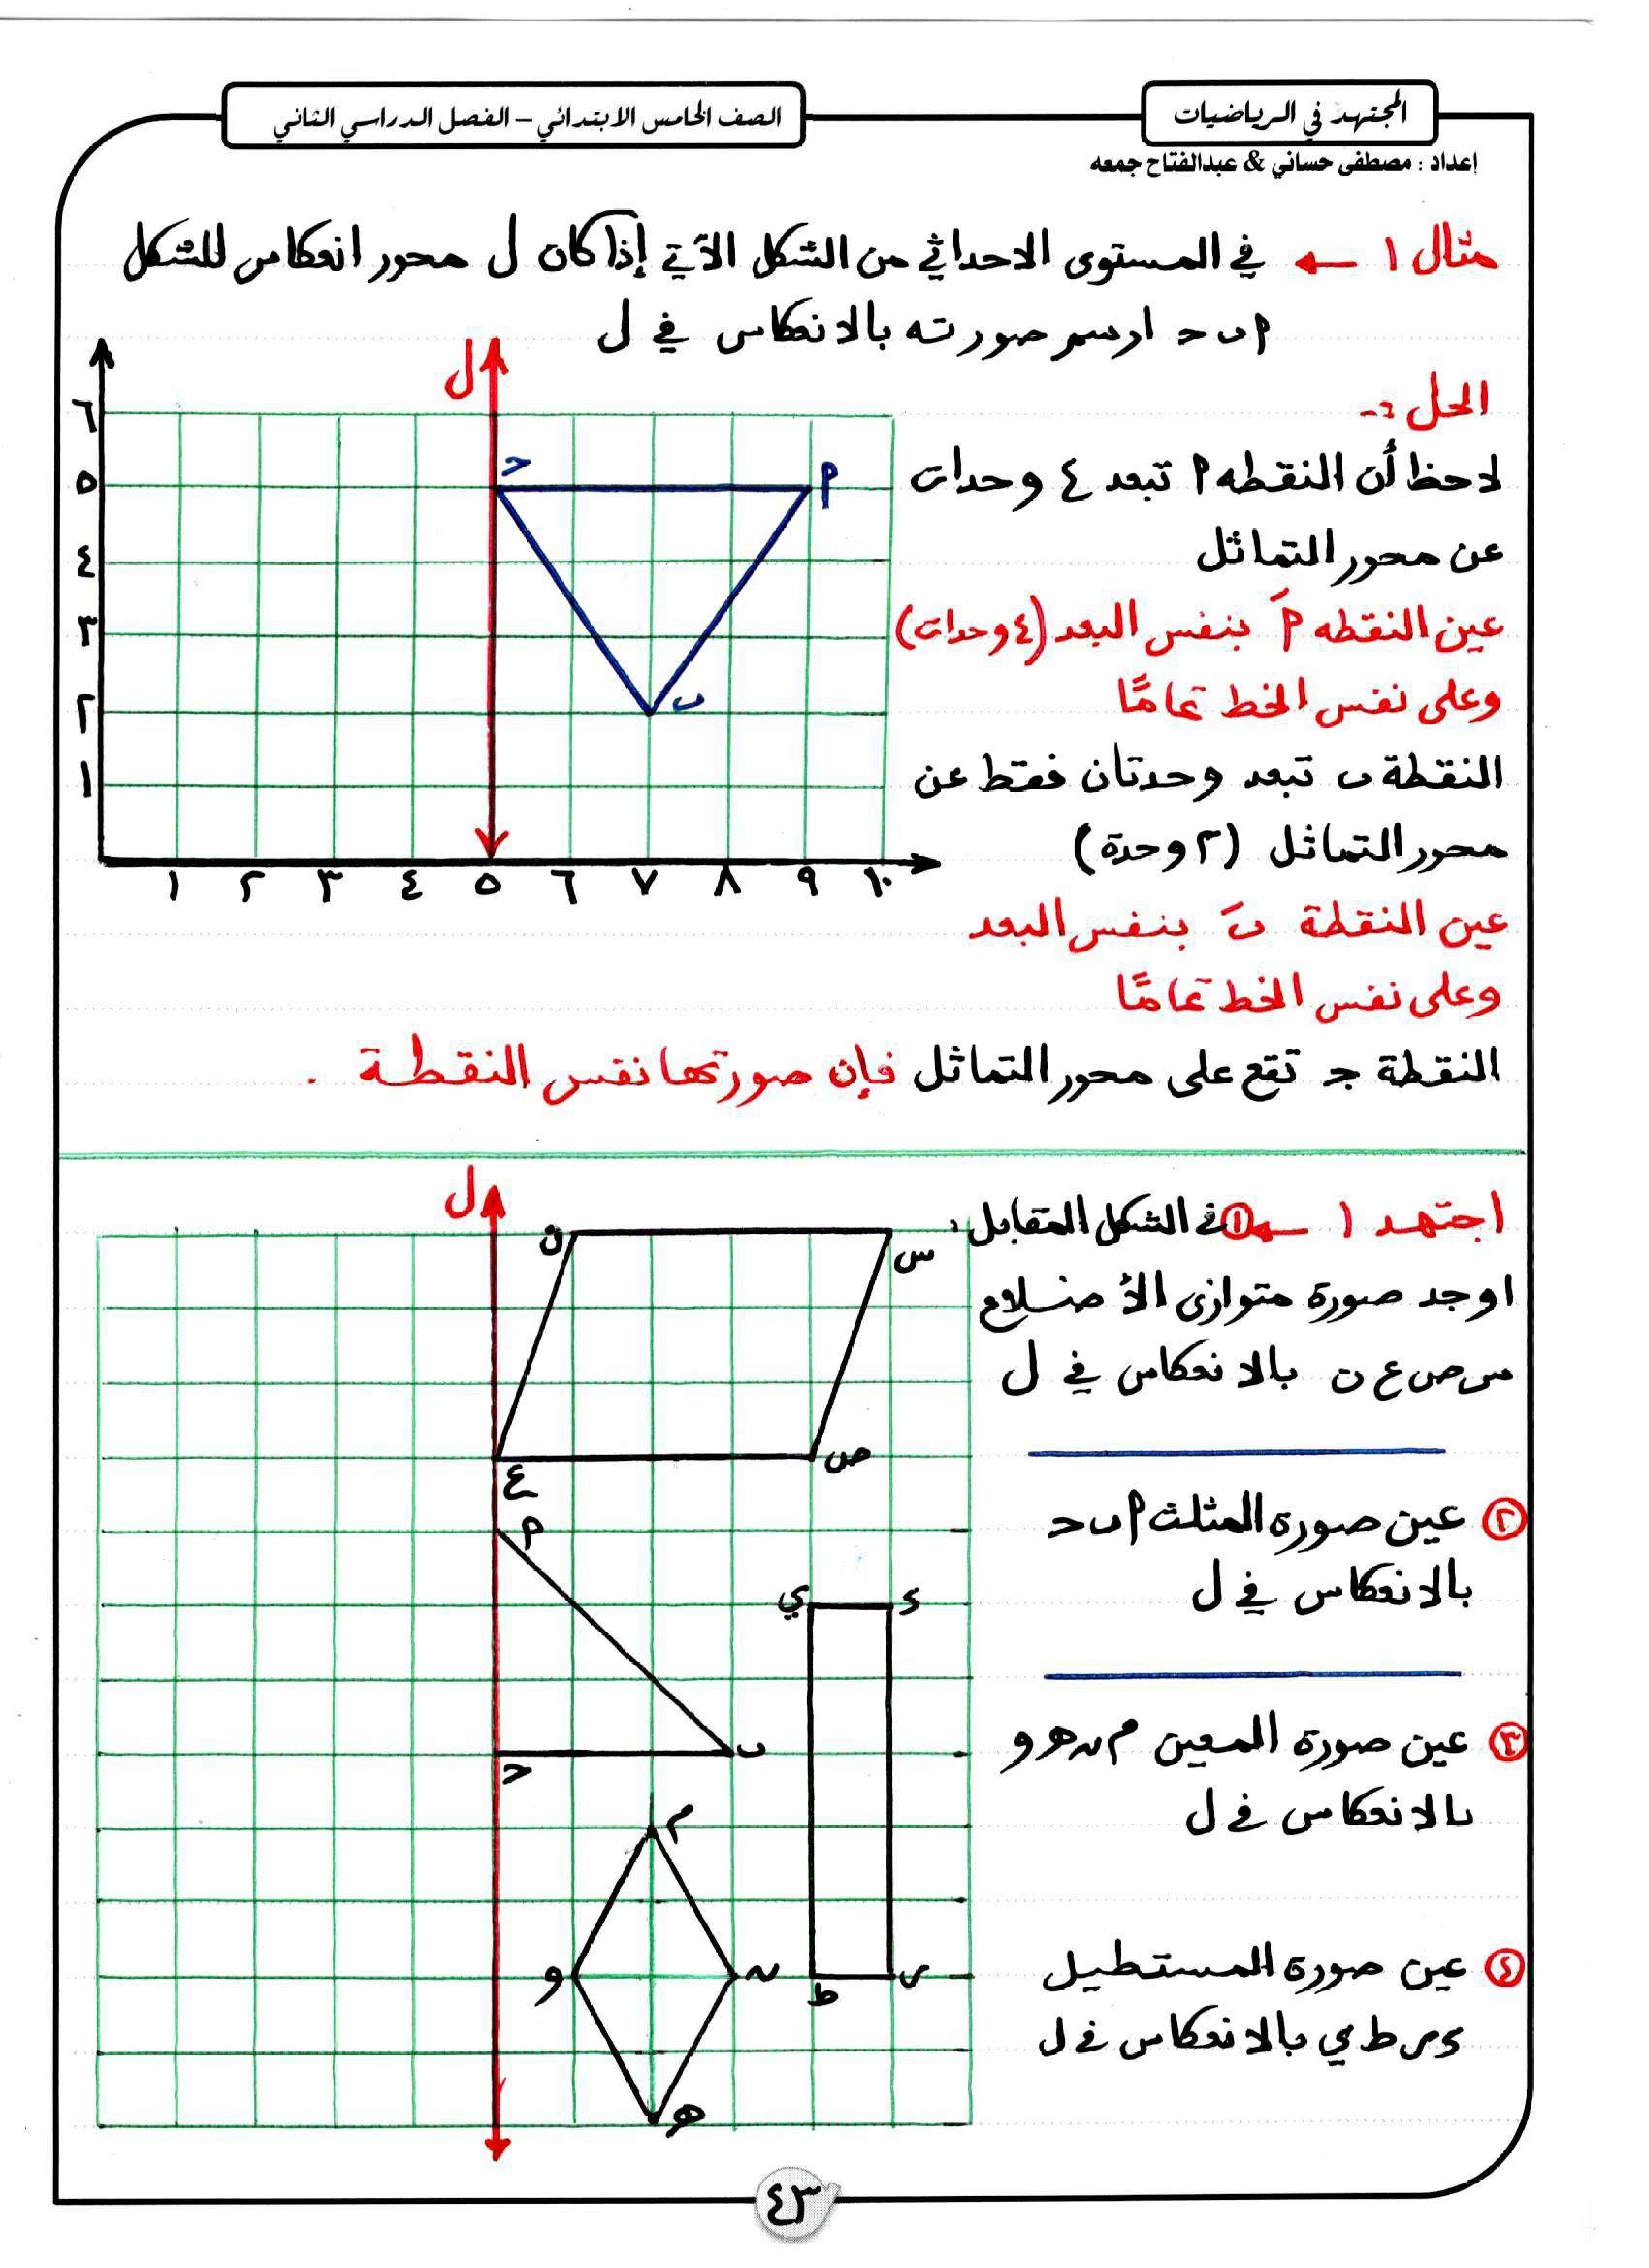 المجتهد في الرياضيات
الصف الخامس الابتدائي – الفصل الدراسي الثاني
إعداد : مصطفى حساني & عبدالفتاح جمعه
مثال ١ ← في المستوى الاحداثي من الشكل الآتي إذا كان ل محور انعكاس للشكل
أ ب ح ارسم صورته بالانعكاس في ل
الحل :-
لاحظ أن النقطه أ تبعد ٤ وحدات
عن محور التماثل
عين النقطه أَ بنفس البعد (٤ وحدات)
وعلى نفس الخط تمامًا
النقطة ب تبعد وحدتان فقط عن
محور التماثل (٢ وحدة)
عين النقطة بَ بنفس البعد
وعلى نفس الخط تمامًا
النقطة ج تقع على محور التماثل فإن صورتها نفس النقطة .
ل
٦
٥
٤
٣
٢
١
١ ٢ ٣ ٤ ٥ ٦ ٧ ٨ ٩ ١٠
ح
أ
ب
اجتهد ١ ← ١ في الشكل المقابل :
اوجد صورة متوازى الأضلاع
س ص ع ن بالانعكاس في ل
٢ عين صورة المثلث أ ب ح
بالانعكاس في ل
٣ عين صورة المعين م ن هـ و
بالانعكاس في ل
٤ عين صورة المستطيل
ء ر ط ي بالانعكاس في ل
ل
ن
س
ع
ص
أ
ي
ء
ب
ح
م
و
ن
ط
ر
هـ
٤٣